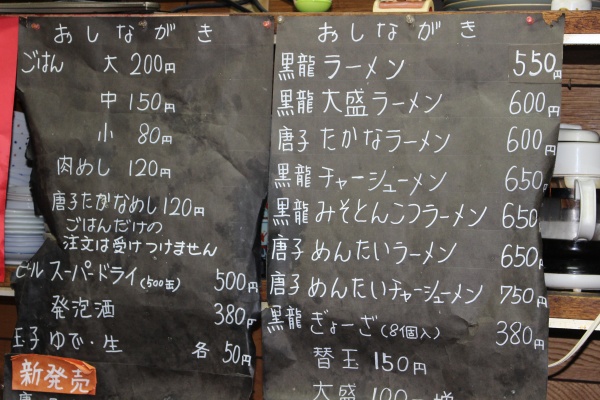 おしながき
ごはん 大 200円
中 150円
小 80円
肉めし 120円
唐子たかなめし 120円
ごはんだけの
注文は受けつけません
ビール スーパードライ(500缶) 500円
発泡酒 380円
玉子 ゆで・生 各 50円
新発売
おしながき
黒龍 ラーメン 550円
黒龍 大盛ラーメン 600円
唐子 たかなラーメン 600円
黒龍 チャーシューメン 650円
黒龍 みそとんこつラーメン 650
唐子 めんたいラーメン 650円
唐子 めんたいチャーシューメン 750円
黒龍 ぎょーざ(8個入) 380円
替玉 150円
大盛 100円増